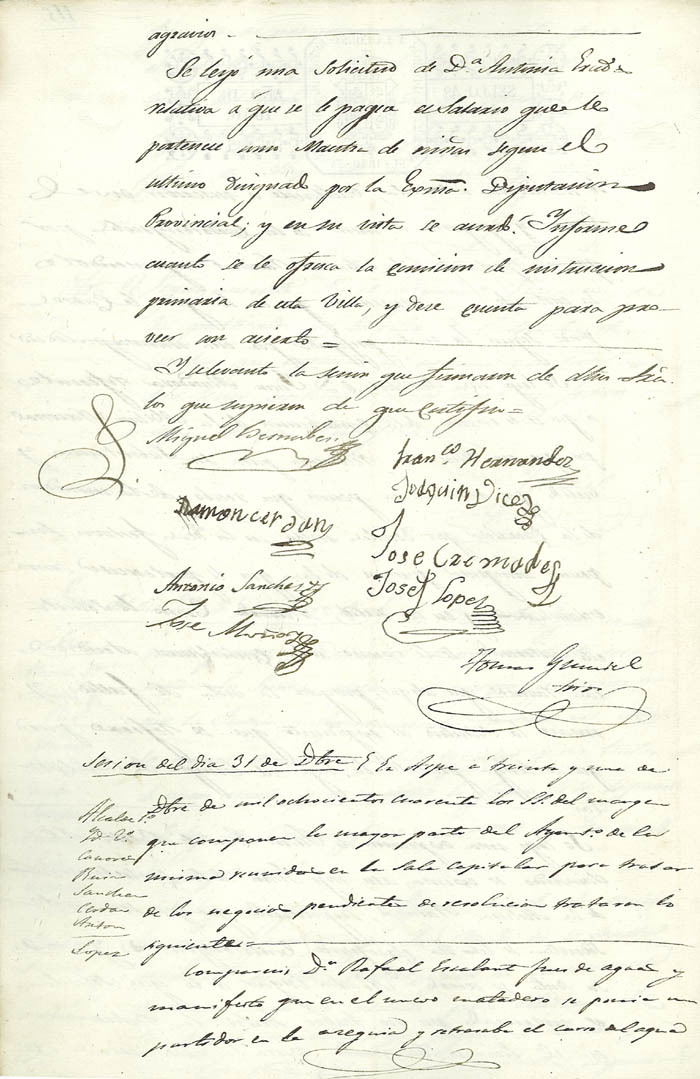 agravios.
Se leyó una solicitud de D.ª Antonia
relativa a que se le pague el Salario que le
pertenece como Maestra de niñas segun el
ultimo designado por la Exma. Diputacion
Provincial; y en su vista se acordó: Informe
cuanto se le ofresca la comision de instruccion
primaria de esta Villa, y dese cuenta para pro-
veer con acierto =
Y se levantó la sesion que firmaron de dhos Sres.
los que supieron de que Certifico =
Miguel
Fran.co Hernandez
Joaquin
Ramon Cerdan
Jose Cremades
Antonio Sanchez
Josef Lopez
Jose Muñoz
Tomas
Srio
Sesion del dia 31 de Dbre E En Aspe á treinta y uno de
Dbre de mil ochocientos cuarenta los SS. del margen
que componen la mayor parte del Ayunt.o de la
misma reunidos en la Sala capitular para tratar
de los negocios pendientes de resolucion trataron lo
siguiente =
Alcalde 1.º
Yd. 2.º
Sanchez
Cerdan
Anton
Lopez
Comparecio D.n Rafael Escolant Juez de aguas y
manifesto que en el nuevo matadero se ponia un
partidor en la acequia y retrasaba el curso del agua